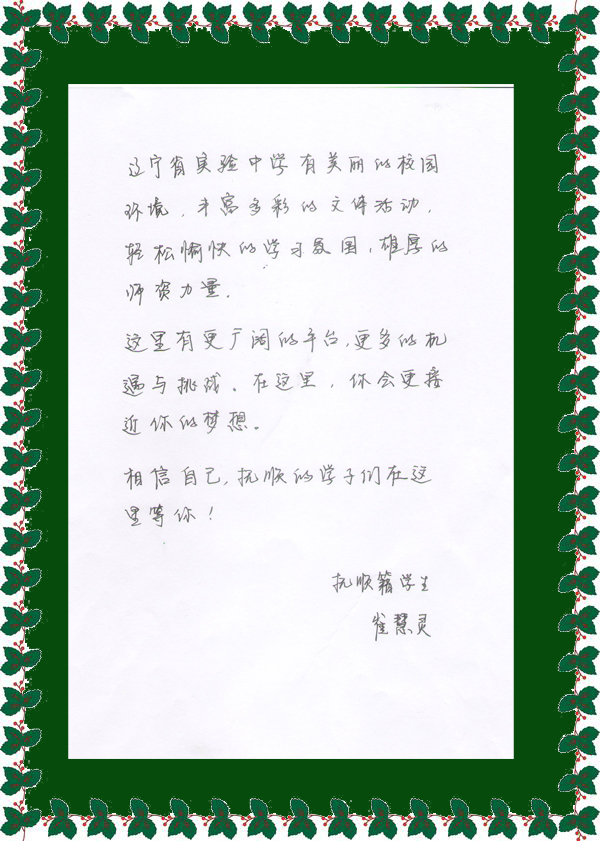 辽宁省实验中学有美丽的校园
环境，丰富多彩的文体活动，
轻松愉快的学习氛围，雄厚的
师资力量．
这里有更广阔的平台，更多的机
遇与挑战。在这里，你会更接
近你的梦想。
相信自己，抚顺的学子们在这
里等你！
抚顺籍学生
崔慧灵